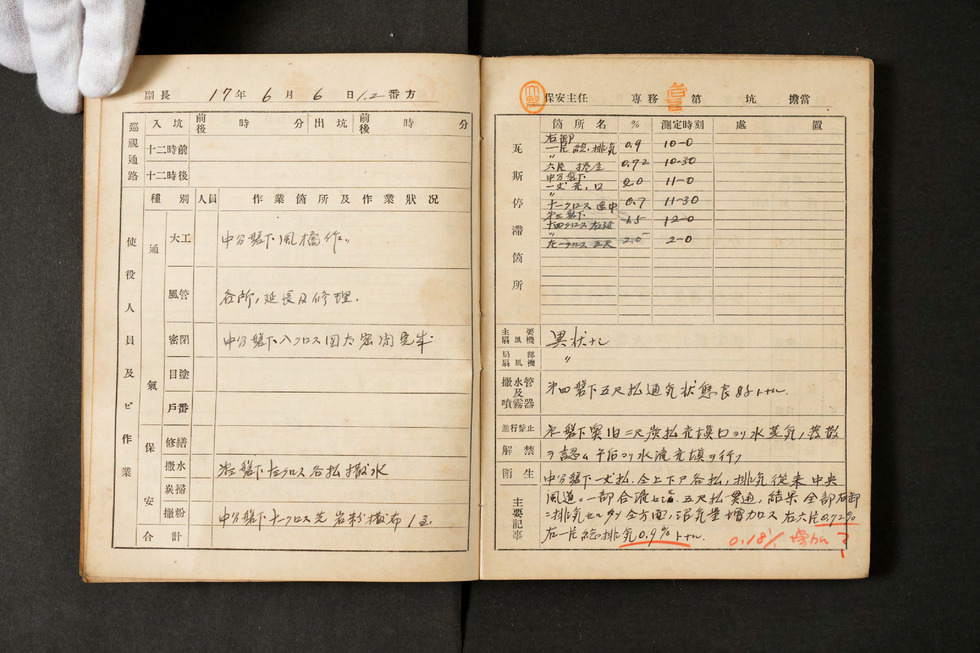 副長 17年 6月 6日 1.2番方
巡視通路 入坑 前後 時 分 出坑 前後 時 分
十二時前
十二時後
使役人員及ビ作業
種別 人員 作業箇所及作業狀況
通氣
大工 中分盤下風橋作〃
風管 各所ノ延長及修理.
密閉 中分盤下入クロス
目塗
戸番
保安
修繕
撒水 盤下 クロス各払撒水
炭掃
撒粉 中分盤下十一クロス先岩粉撒布
合計
保安主任 專務 第 坑 擔當
瓦斯停滯箇所
箇所名 % 測定時刻 處置
右卸
一片総排気 0.9 10-0
〃
六片 0.72 10-30
中分盤下
一丈先口 2.0 11-0
〃
十一クロス 途中 0.7 11-30
盤下
クロス右延 1.5 12-0
〃
クロス 2.0 2-0
主要扇風機 異状ナシ
局部扇風機 〃
撒水管及噴霧器 第四盤下五尺払通気状態良好トナル
進行禁止
解禁
盤下奥旧二尺炭払充填口ヨリ水蒸気ノ発散
ヲ認ム午后ヨリ水流充填ヲ行フ
衛生
主要記事
中分盤下一丈払、仝上下戸各払ノ排気従来中央
風道ニ一部合流 五尺払貫通ノ結果全部右卸
ニ排気セル為全方面ノ沼気量増加ス 右六片0.72%
右一片総排気0.9%トナル.
0.18% 増加?